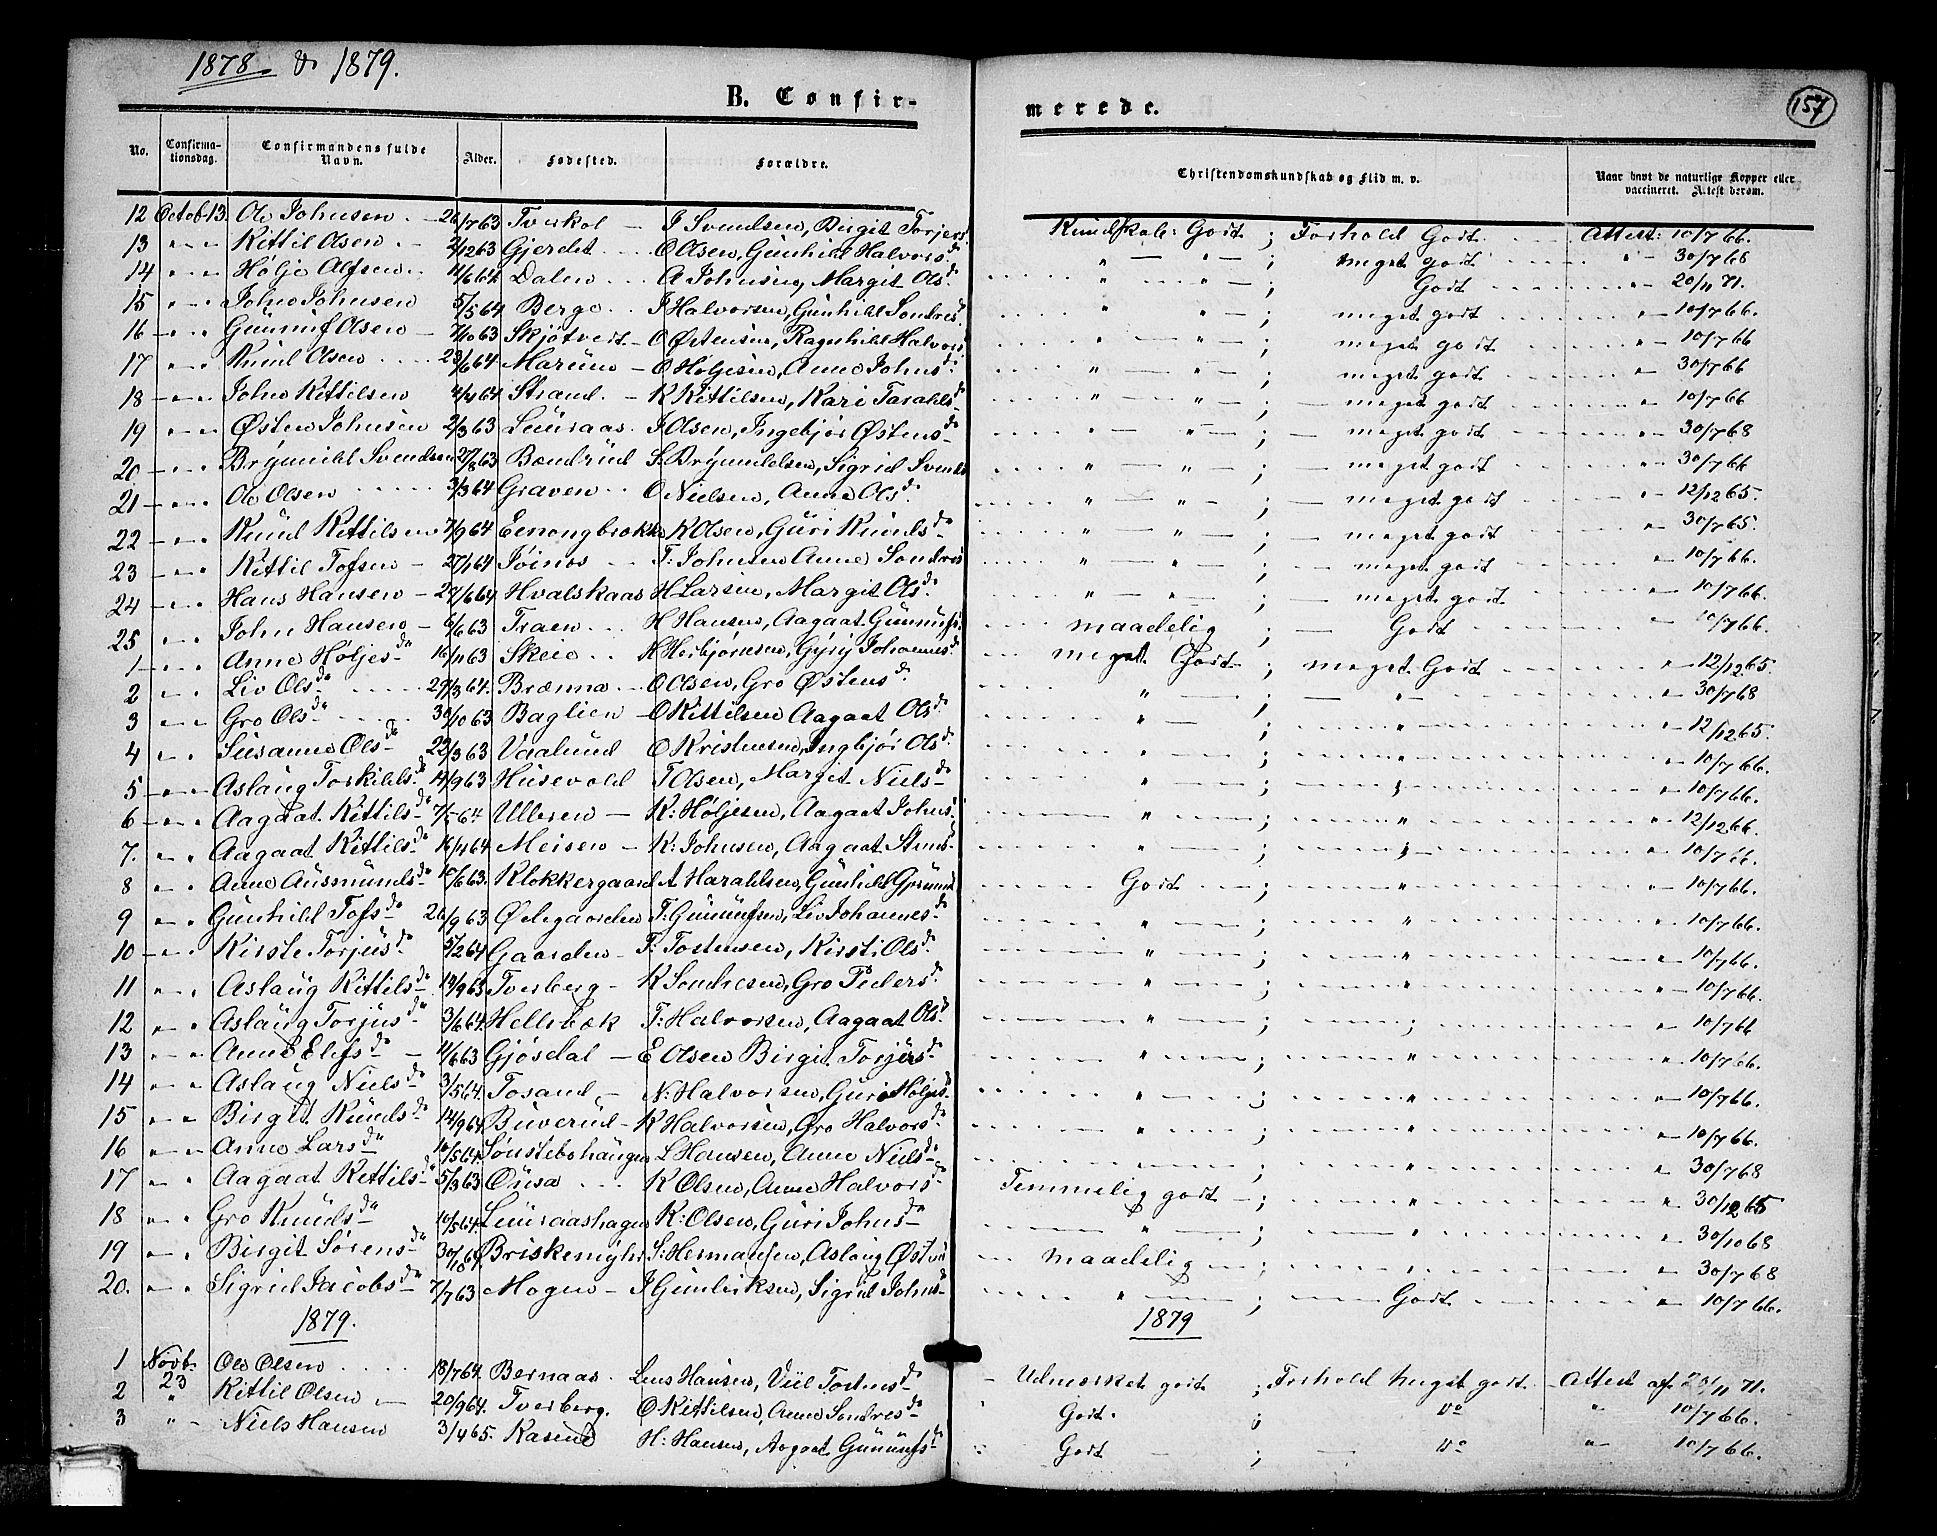 1878 & 1879.
B. Confirmerede.
157
No. Confirmationsdag. Confirmandens fulde Navn. Alder. Fødested. Forældre. Christendomskundskab og Flid m. v. Naar havt de naturlige Kopper eller vaccineret. Attest derom.
12 Octob 13. Ole Johnsen 26/7 63 Tveikol J Svendsen, Birgit Torjers Kundskab: Godt ; Forhold Godt Attest: 10/7 66.
13 " " Kittil Olsen 2/12 63 Gjerdet O Olsen, Gunhild Halvorsda " " ; meget godt " 30/7 68
14 " " Hølje Alfsen 11/6 64 Dalen A Johnsen, Margit Olsda " " ; Godt " 20/11 71.
15 " " John Johnsen 5/5 64 Berge J Halvorsen, Gunhild Sondresda " " ; meget godt " 10/7 66.
16 " " Gunnuf Olsen 7/10 63 Skjøtvedt O Østensen, Ragnhild Halvors " " ; meget godt " 10/7 66
17 " " Knud Olsen 23/6 64 Marune O Høljesen, Anne Johnsda " " ; meget godt " 30/7 66
18 " " John Kittilsen 4/4 64 Strand K Kittilsen, Kari Taraldsda " " ; meget godt " 10/7 66
19 " " Østen Johnsen 2/3 63 Leuraas J Olsen, Ingebjør Østensda " " ; meget godt " 30/7 68
20 " " Brynnild Svendsen 27/8 63 Bændrud S: Brynnildsen, Sigrid Svends " " ; meget godt " 30/7 66
21 " " Ole Olsen 3/3 64 Graven O Nielsen, Anne Olsda " " ; meget godt " 12/12 65.
22 " " Knud Kittilsen 7/9 64 Eenongbrokke K Olsen, Guri Knudsda " " ; meget godt " 30/7 65.
23 " " Kittil Tofsen 27/1 64 Jøinos T: Johnsen Anne Sondres " " ; meget godt " 10/7 66.
24 " " Hans Hansen 27/6 64 Hvalskaas H Larsen, Margit Olsda " " ; meget godt " 10/7 66.
25 " " John Hansen 6/6 63 Traen H Hansen, Aagaat Gunnufs maadelig ; Godt 10/7 66.
1 " " Anne Høljesda 16/11 63 Skeie H Herbjørnsen, Gyrij Johannesda meget Godt ; meget Godt " 12/12 65.
2 " " Liv Olsda 27/3 64. Brænna O Olsen, Gro Østensda " ; " " 30/7 68
3 " " Gro Olsda 30/10 63 Baglien O Kittilsen Aagaat Olsda " ; " " 12/12 65.
4 " " Susanne Olsda 22/3 63 Vaalund O Kristensen, Ingbjør Olsda " ; " " 10/7 66.
5 " " Aslaug Torkildsda 14/9 63 Husevold T Olsen, Marget Nielsda " ; " " 10/7 66.
6 " " Aagaat Kittilsda 7/5 64 Ulleren K: Høljesen, Aagaat Johns " ; " " 12/12 66.
7. " " Aagaat Kittilsda 16/4 64 Meisen K: Johnsen, Aagaat Stens " ; " " 10/7 66.
8 " " Anne Ausmundsda 10/6 63. Klokkergaard A Haraldsen, Gunhild Godt ; " " 10/7 66.
9 " " Gunhild Tofsda 26/9 63 Ødegaarden T: Gunnufsen, Liv Johannesda " ; " " 10/7 66.
10 " " Kirste Torjusda 5/2 64 Gaarden T: Tostensen, Kirsti Olsda " ; " " 10/7 66.
11 " " Aslaug Kittilsda 19/9 63 Tverberg K Sondresen, Gro Pedersda " ; " " 10/7 66.
12 " " Aslaug Torjusda 3/6 64. Hellebæk T: Halvorsen, Aagaat Olsda " ; " " 10/7 66
13 " " Anne Elefsda 11/6 63 Gjøsdal E Olsen Birgit Torjersda " ; " " 10/7 66.
14 " " Aslaug Nielsda 3/5 64. Tosand N: Halvorsen, Guri Høljesda " ; " " 10/7 66.
15 " " Birgit Knudsda 14/9 64 Buverud K Halvorsen, Gro Halvorsda " ; " " 10/7 66.
16 " " Anne Larsda 10/5 64. Sønstebøhaugen L Hansen, Anne Nielsda " ; " " 30/7 68
17 " " Aagaat Kittilsda 5/3 63 Ousa K Olsen, Anne Halvorsda Temmelig godt ; " " 30/12 65
18 " " Gro Knudsda 10/5 64. Leuraashagen K: Olsen, Guri Johnsda " ; " " 30/10 68
19 " " Birgit Sørensda 30/10 64. Briskemyhr S: Hermansen, Aslaug Østens maadelig ; " " 30/7 68
20. " " Sigrid Jacobsda 7/7 63 Mogen J Gunleiksen, Sigrid Johnsda " ; Godt " 10/7 66.
1879. 1879
1 Novb. 23 Ole Olsen 18/7 64. Bernaas Hansen, Tostensda Udmærket godt ; Forhold meget godt Attest af 20/11 71.
2 " Kittil Olsen 20/9 64. Tverberg. O Kittilsen, Anne Sondresda Godt. ; Do " 10/7 66.
3 " Niels Hansen 3/4 65. Kasend H: Hansen, Aagaat Gunnufsda Godt ; Do " 10/7 66.